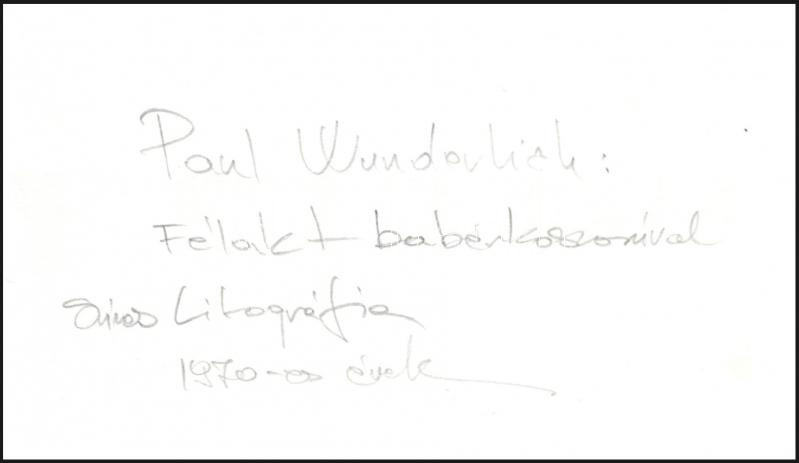 Paul Wunderlich:
Félakt babérkoszorúval
Színes Litográfia
1970-es évek